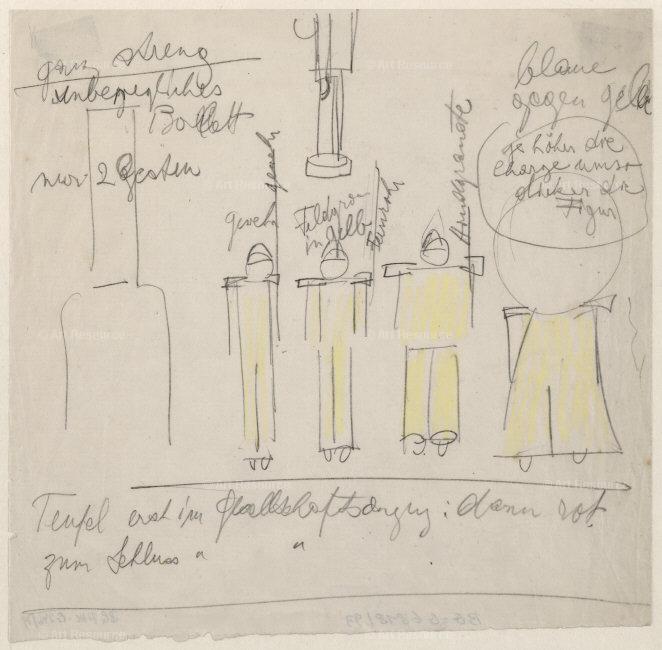 ganz streng
unbewegliches
Ballett
nur 2 Gesten
gewehr
gewehr
Feldgrau
in gelb
Fernrohr
Handgranate
blaue
gegen gelbe
je höher die
charge umso
dicker die
Figur
Teufel erst im Gesellschaftsanzug: dann rot
zum Schluss " "
© Art Resource